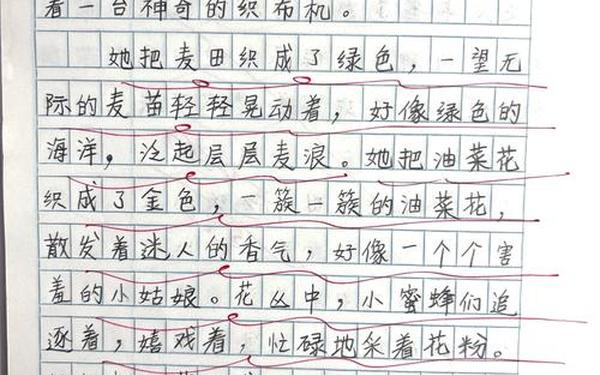 着一台神奇的织布机。
她把麦田织成了绿色，一望无
际的麦苗轻轻晃动着，好像绿色的
海洋，泛起层层麦浪。她把油菜花
织成了金色，一簇一簇的油菜花，
散发着迷人的香气，好像一个个害
羞的小姑娘。花丛中，小蜜蜂们追
逐着，嬉戏着，忙碌地采着花粉。